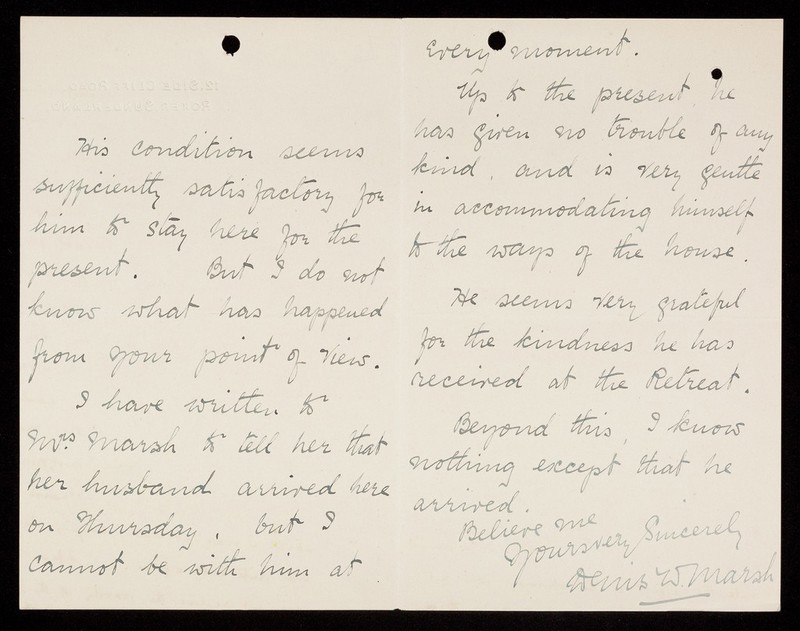 His condition seems
sufficiently satisfactory for
him to stay here for the
present. But I do not
know what has happened
from your point of view.
I have written to
Mrs Marsh to tell her that
her husband arrived here
on Thursday, but I
cannot be with him at
every moment.
Up to the present he
has given no trouble of any
kind, and is very gentle
in accommodating himself
to the ways of the house.
He seems very grateful
for the kindness he has
received at the Retreat.
Beyond this, I know
nothing except that he
arrived.
Believe me
Yours very Sincerely
Denis W. Marsh